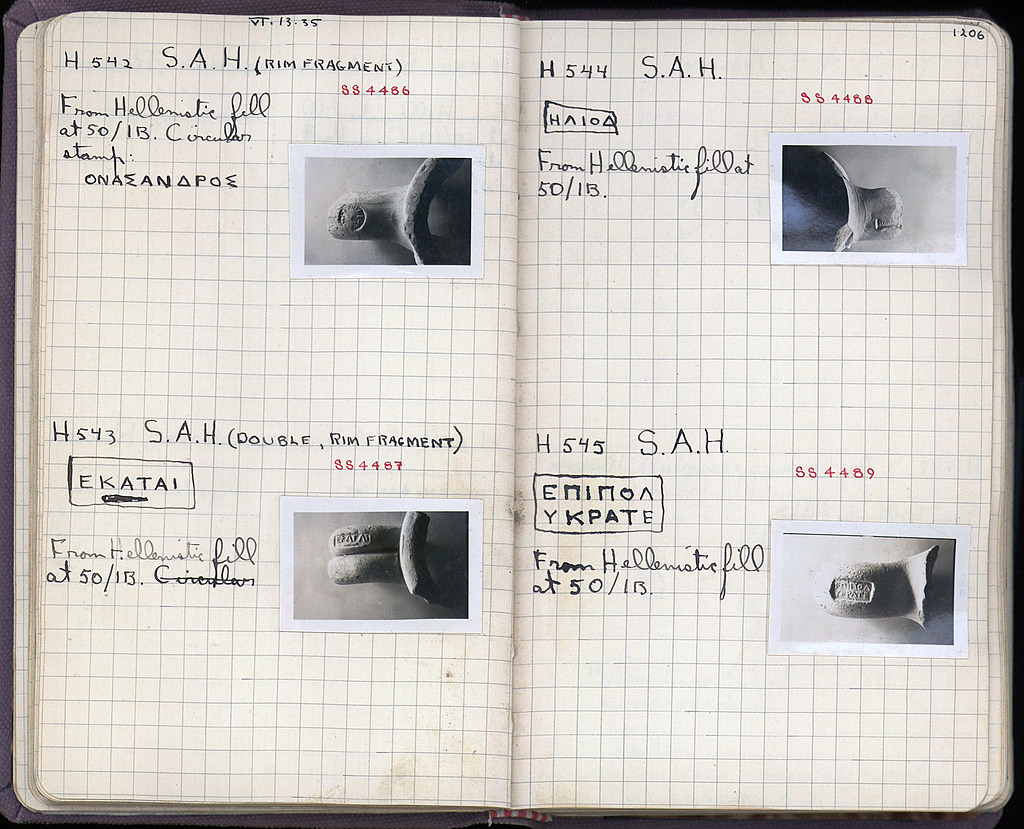 VI.13.35
H 542 S.A.H. (RIM FRAGMENT)
SS 4486
From Hellenistic fill
at 50/ΙΒ. Circular
stamp:
ΟΝΑΣΑΝΔΡΟΣ
H 543 S.A.H. (DOUBLE, RIM FRAGMENT)
SS 4487
ΕΚΑΤΑΙ
From Hellenistic fill
at 50/ΙΒ. Circular
ΕΚΑΤΑΙ
1206
H 544 S.A.H.
SS 4488
ΗΛΙΟΔ
From Hellenistic fill at
50/ΙΒ.
H 545 S.A.H.
SS 4489
ΕΠΙΠΟΛ
ΥΚΡΑΤΕ
From Hellenistic fill
at 50/ΙΒ.
ΕΠΙΠΟΛ
ΥΚΡΑΤΕ